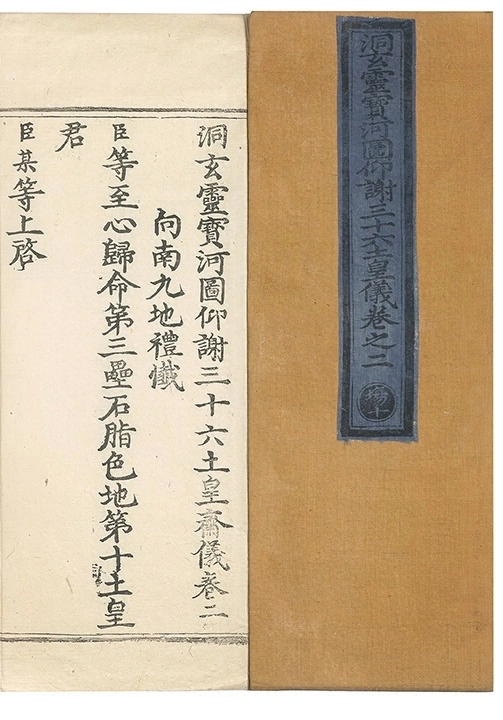 洞玄靈寶河圖仰謝三十六土皇儀卷之二
場十
洞玄靈寶河圖仰謝三十六土皇齋儀卷二
向南九地禮懺
臣等至心歸命第三壘石脂色地第十土皇
君
臣某等上啓